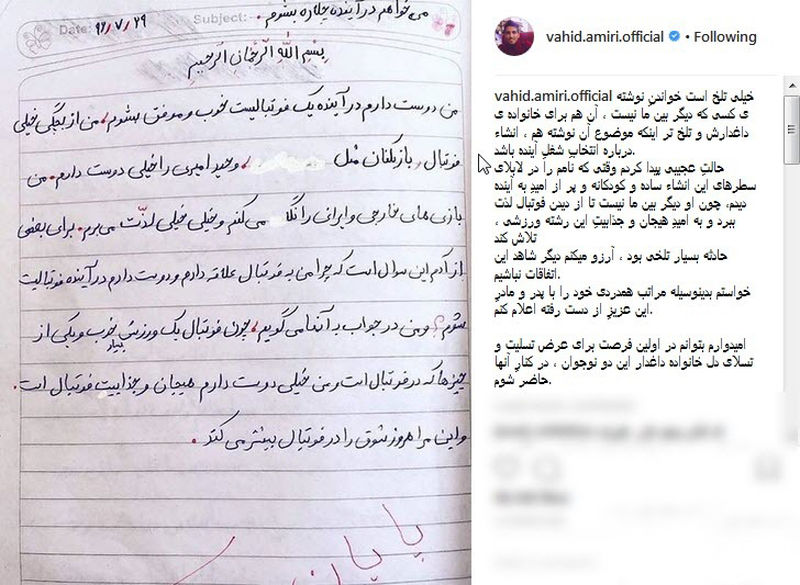 می خواهم در آینده چکاره بشوم.
Date: ۹۶/۷/۲۹
Subject:
بسم الله الرحمان الرحیم
من دوست دارم در آینده یک فوتبالیست خوب و موفق بشوم. من از بچگی خیلی
فوتبال و بازیکنان مثل و وحید امیری را خیلی دوست دارم. من
بازی های خارجی و ایرانی را نگا می کنم و خیلی خیلی لذت می برم. برای بعضی
از آدم این سوال است که چرا من به فوتبال علاقه دارم و دوست دارم در آینده فوتبالیست
بشوم؟ و من در جواب به آنها می گویم، چون فوتبال یک ورزش بسیار خوب و یکی از
چیزها که در فوتبال است و من خیلی دوست دارم هیجان و جذابیت فوتبال است.
و این مرا هر روز شوق را در فوتبال بیشتر می کند.
پایان
vahid.amiri.official • Following
vahid.amiri.official خیلی تلخ است خواندنِ نوشته
ی کسی که دیگر بین ما نیست ، آن هم برای خانواده ی
داغدارش و تلخ تر اینکه موضوع آن نوشته هم ، انشاء
درباره انتخابِ شغلِ آینده باشد.
حالتِ عجیبی پیدا کردم وقتی که نامم را در لابلای
سطرهای این انشاء ساده و کودکانه و پر از امیدِ به آینده
دیدم، چون او دیگر بین ما نیست تا از دیدن فوتبال لذت
ببرد و به امیدِ هیجان و جذابیتِ این رشته ورزشی ،
تلاش کند
حادثه بسیار تلخی بود ، آرزو میکنم دیگر شاهد این
اتفاقات نباشیم.
خواستم بدینوسیله مراتب همدردی خود را با پدر و مادرِ
این عزیزِ از دست رفته اعلام کنم.
امیدوارم بتوانم در اولین فرصت برای عرض تسلیت و
تسلای دل خانواده داغدار این دو نوجوان ، در کنارِ آنها
حاضر شوم.